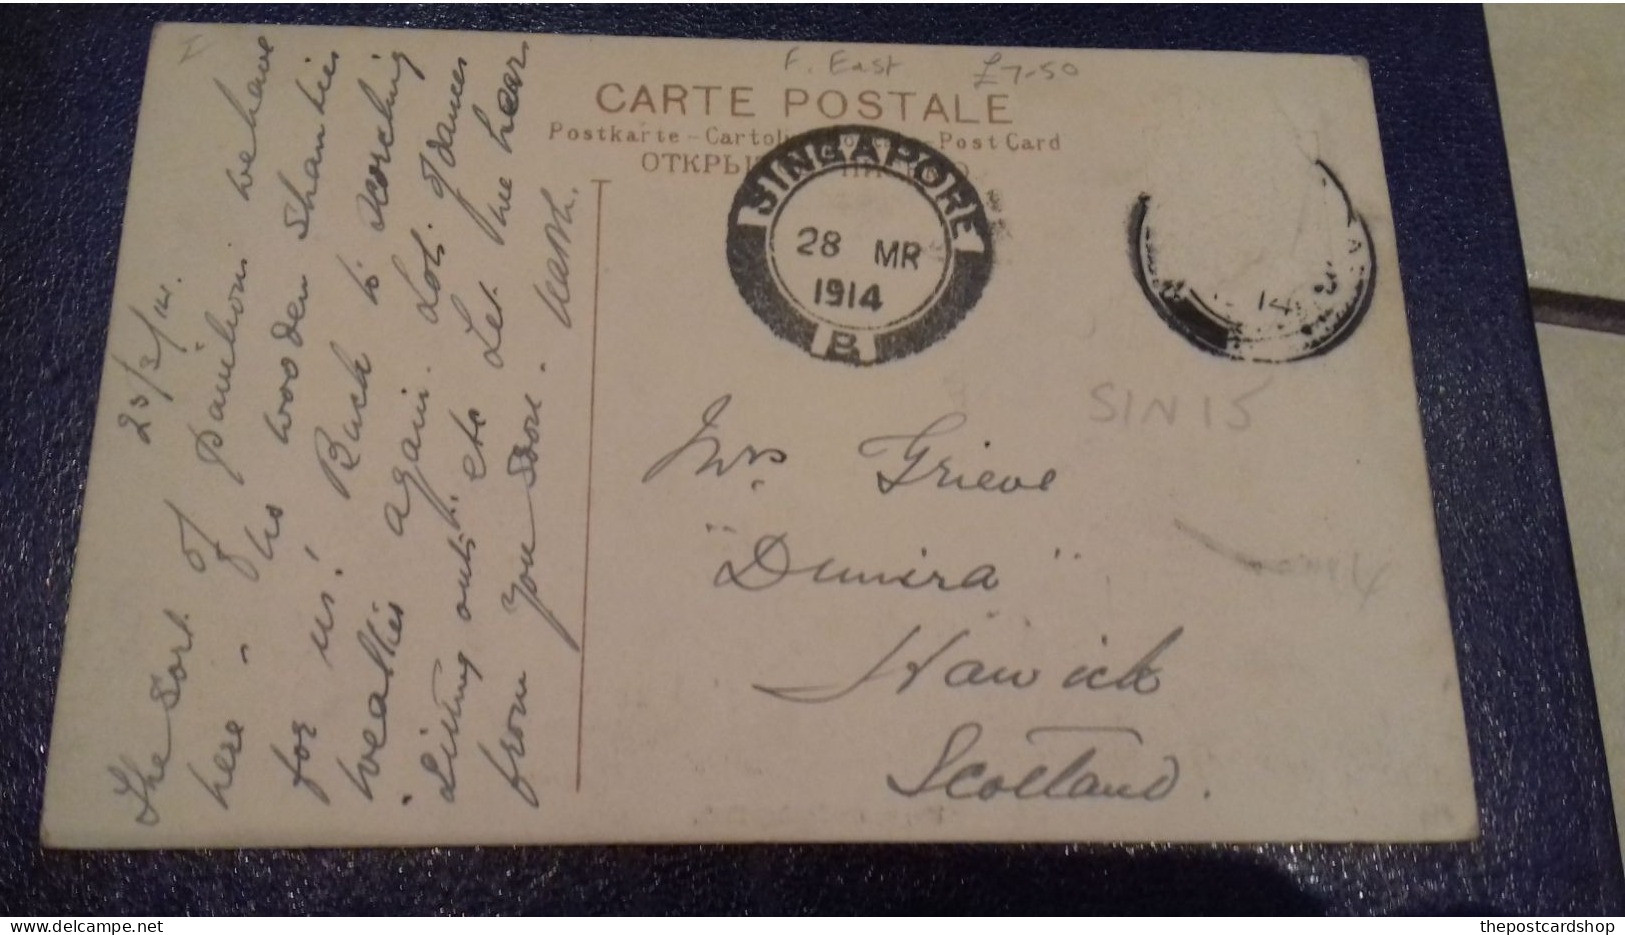 F. East £7-50
CARTE POSTALE
Postkarte - Cartoli Post Card
ОТКРЫ
SINGAPORE
28 MR
1914
B
14
SIN 15
23/3/14.
The sort of pavilion we have
here - No wooden shanties
for us! Back to scorching
weather again. Lots of dances
sitting outs etc Let me hear
from you soon.
Mrs Grieve
"Dunira"
Hawick
Scotland.
thepostcardshop